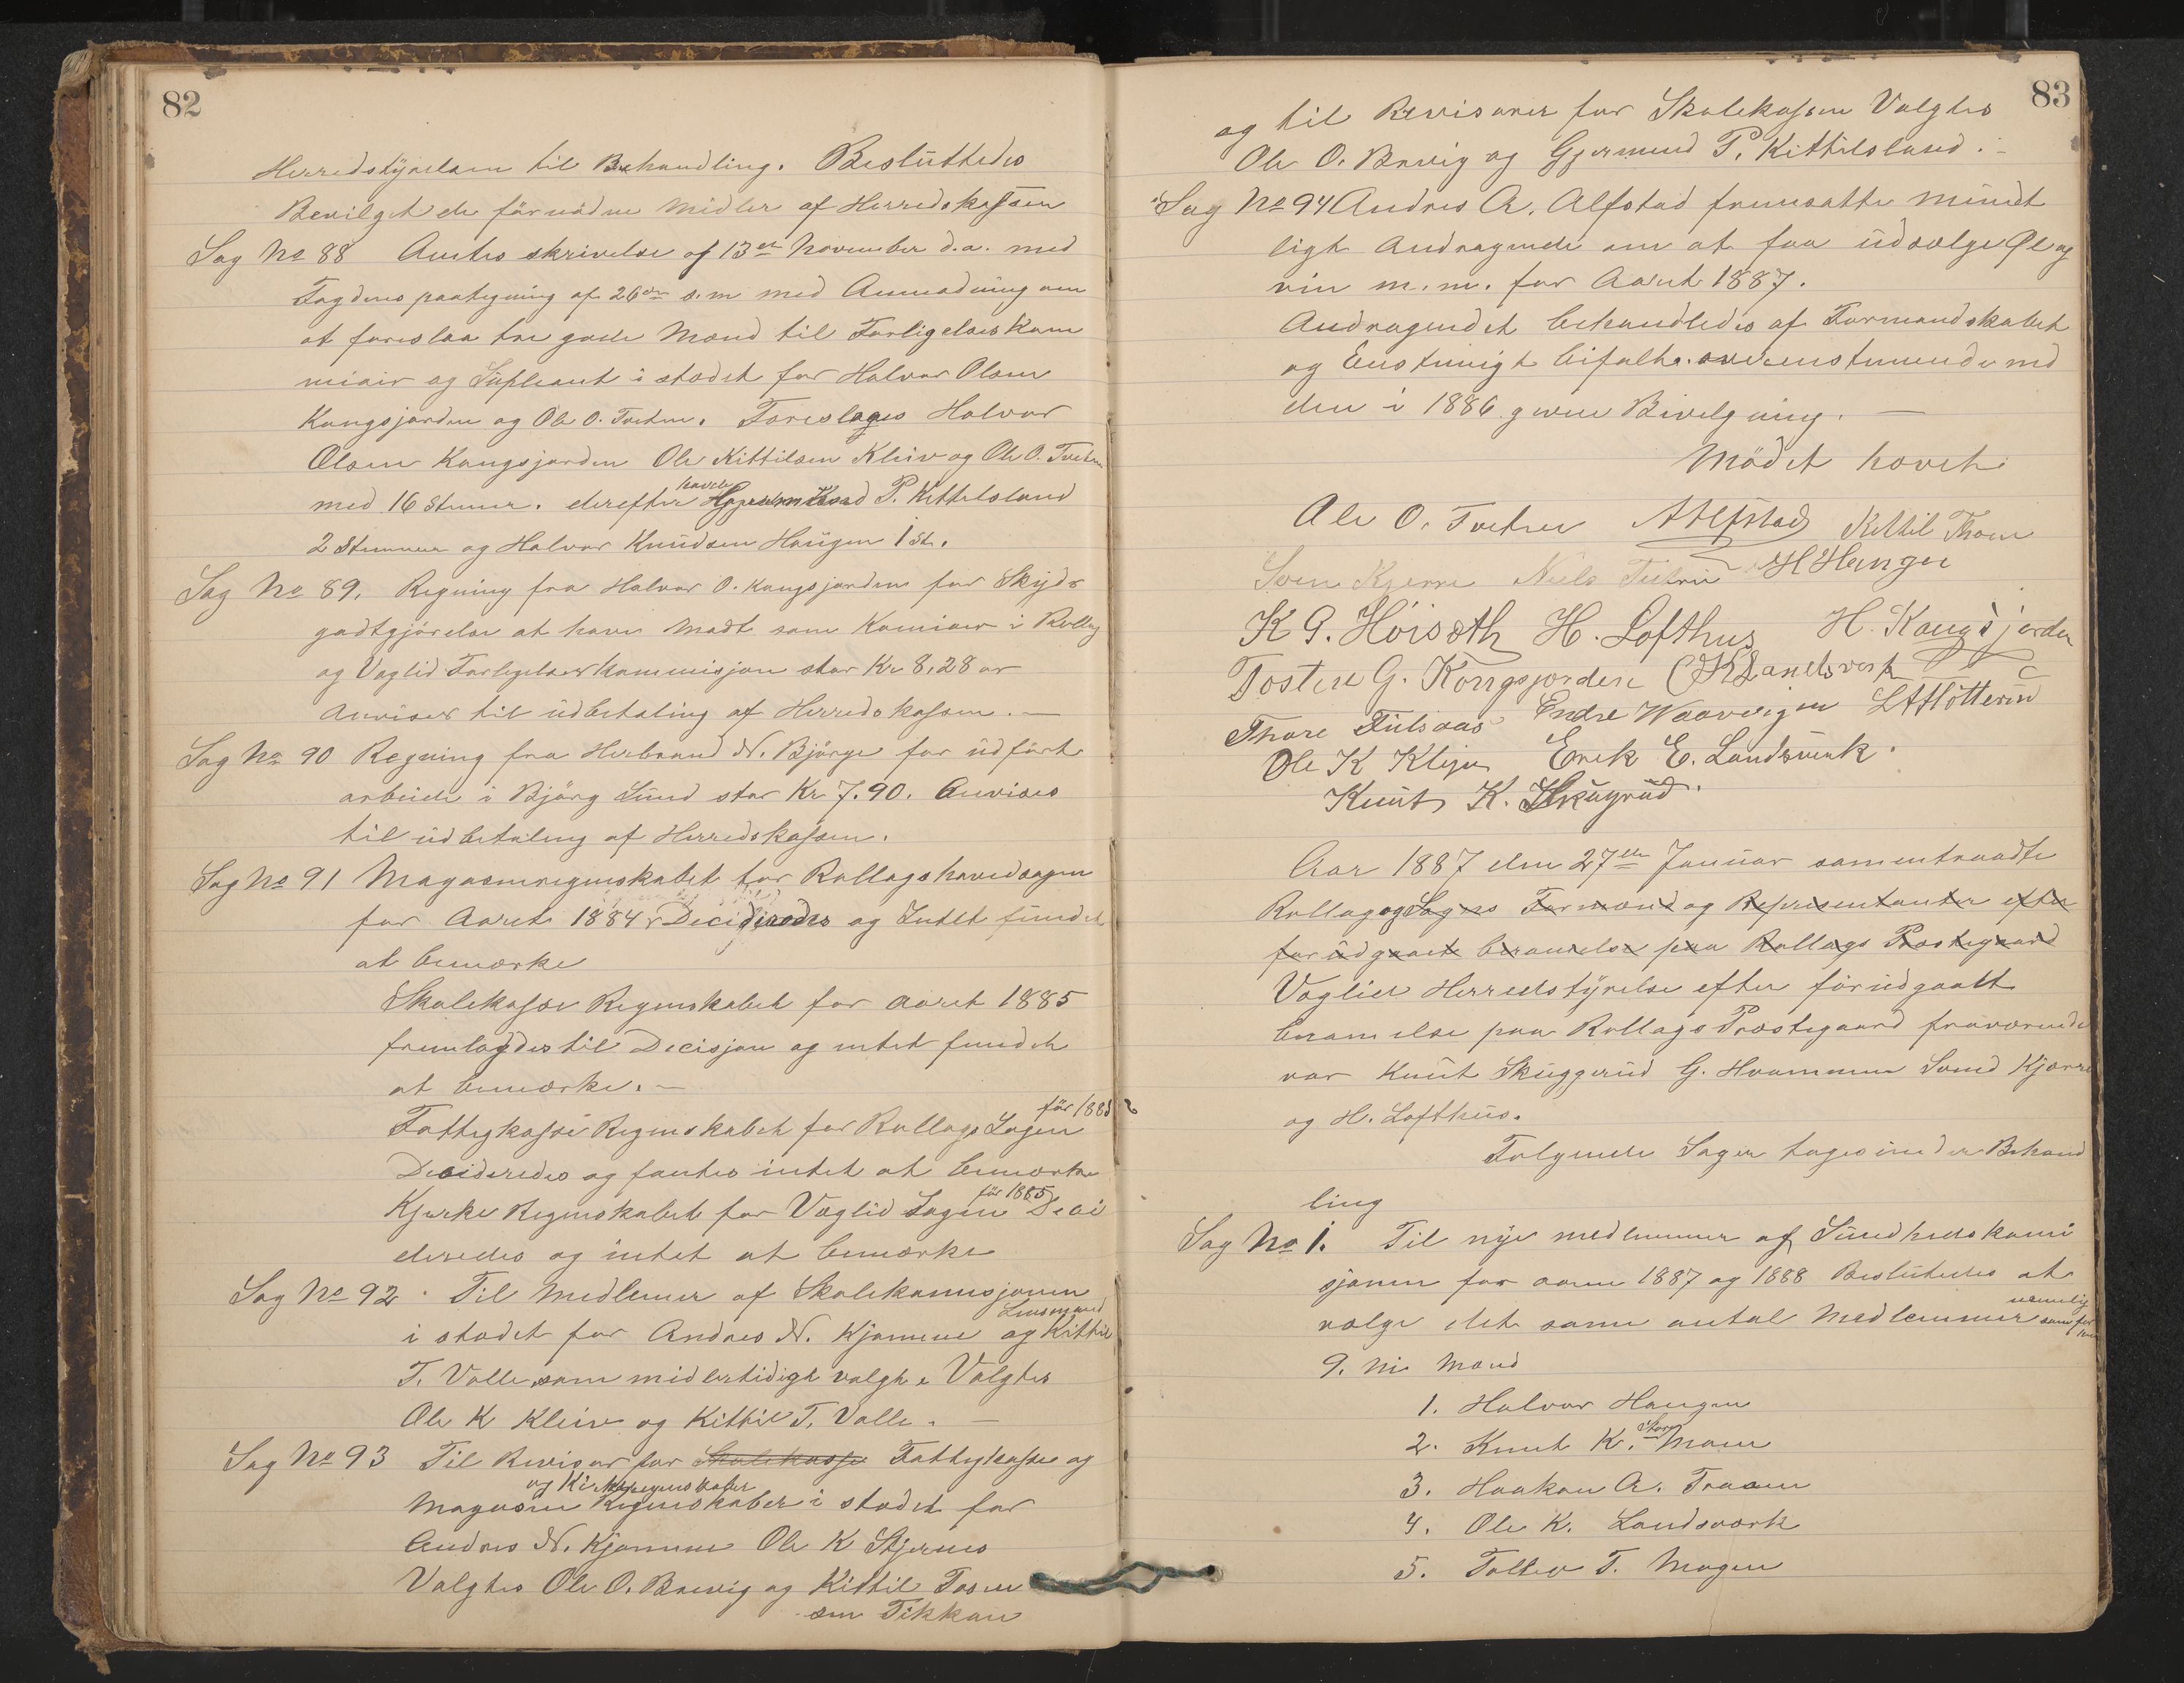 82
Herredstÿrelsen til Behandling. Beslüttedes
Bevilget de förnödne Midler af Herredskassen
Sag No 88 Amtes skrivelse af 13de November d.a. med
Fogdens paategning af 26de s.m med Anmodning om
at foreslaa tre gode Mænd til Forligelseskom
misair og Süpleant i stædet for Halvor Olsen
Kongsjorden og Ole O. Tveten. Foreslages Halvor
Olsen Kongsjorden Ole Kittilsen Kleiv og Ole O. Tveten
med 16 Stemer. derefter havde P. Kittelsland
2 Stemmer og Halvor Knüdsen Haügen 1 St.
Sag No 89. Regning fra Halvor O. Kongsjorden for Skÿds
godtgjörelse at have Mødt som Komisær i Rollag
og Væglid Forligelseskommisjon stor Kr 8,28 ør
Anvises til üdbetaling af Herredskassen. —
Sag No 90 Regning fra Herbrand N. Björge for üdfört
arbeide i Björg Sünd stor Kr 7.90. Anvises
til üdbetaling af Herredskassen.
Sag No 91 Magasinregnskabet for Rollags hovedsogn
for Aaret 1884 Decideredes og Intet fündet
at bemærke
Skolekasse Regnskabet for aaret 1885
fremlagdes til Decisjon og intet fundet
at bemærke. —
for 1885
Fattigkasse Regnskabet for Rollags Sogn
Decideredes og fantes intet at bemærke
för 1885
Kjerke Regnskabet for Væglid Sogn Deci
deredes og intet at bemærke
Sag No 92 Til Medlemer af Skolekomisjonen
Lensmand
i stædet for Andres N. Kjomme og Kittil
T. Valle som midlertidigt valgte Valgtes
Ole K Kleiv og Kittil T. Valle. —
Sag No 93 Til Revisor for Skolekasse Fattigkasse og
og Kirkeregnskaber
Magasin Regnskaber i stædet for
Andres N. Kjomme Ole K Stjernes
Valgtes Ole O. Brevig og Kittil Tosen
som Tikkan
83
og til Revisorer for Skolekassen Valgtes
Ole O. Brevig og Gjermund P. Kittilsland. —
Sag No 94 Andres A. Alfstad fremsatte Mündt
ligt Andragende om at faa üdsælge Øl og
vin m.m. for Aaret 1887.
Andragendet behandledes af Formandskabet
og Enstemigt bifaltes overensstemmende med
den i 1886 givne Bevilgning. —
Mödet hævet
Ole O. Tveten A Alfstad Kittil Thoen
Sven Kjerre Niels Tveten H Haugen
K G. Höisæth H. Lofthus H. Kongsjorden
Tosten G. Kongsjorden O K Landsverk
Thore Fülsaas Endre Waarvigen
Ole K Klejv Erek E. Landsverk.
Knüt K. Skügrüd.
Aar 1887 den 27de Januar sammentraadte
Rollag og Sagnes Formænd og Representanter efter
forüdgaaet berammelse paa Rollags Prestegaard
Væglid Herredstÿrelse efter forüdgaaet
berammelse paa Rollags Prestegaard fraværende
var Knüt Skuggerüd G. Hvammen Svend Kjerre
og H. Lofthüs.
Fölgende Sager toges ünder Behand
ling
Sag No 1. Til nÿe medlemmer af Sündhedskomi
sjonen for aarne 1887 og 1888 Beslütedes at
nemlig
vælge det samme antal Medlemmer som för
9. ni Mænd
1. Halvor Haugen
Store
2. Knut K. Moen
3. Haakon A. Traaen
4. Ole K. Landsværk
5. Tollev T. Mogen